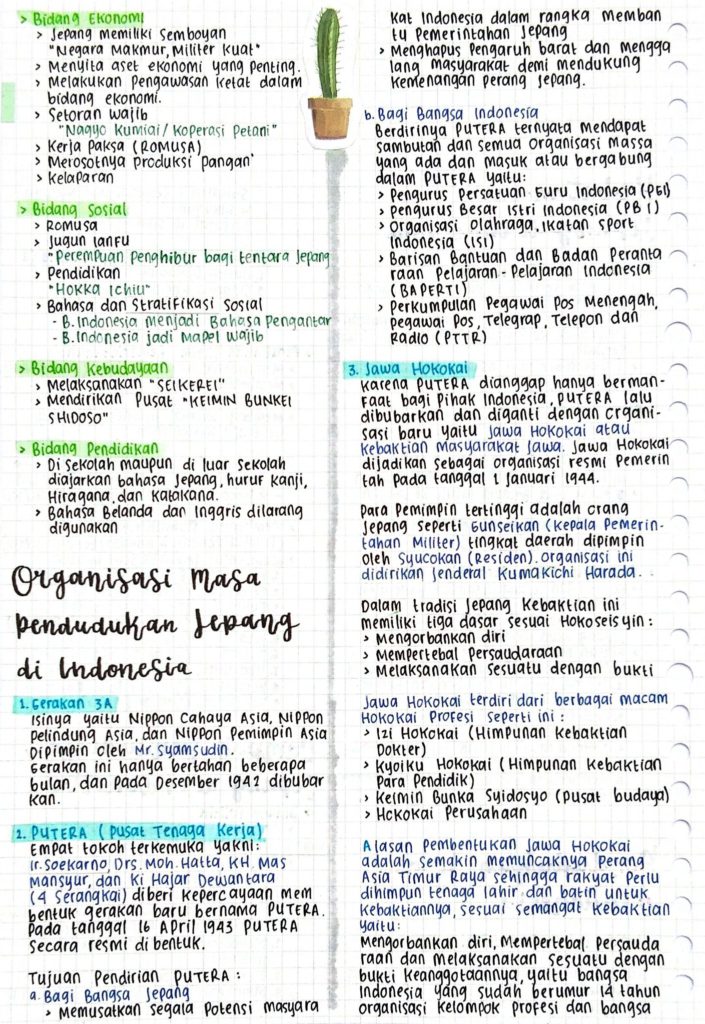 > Bidang Ekonomi
> Jepang memiliki Semboyan
"Negara Makmur, Militer Kuat"
> Menyita aset ekonomi yang penting.
> Melakukan Pengawasan Ketat dalam
bidang ekonomi.
> Setoran wajib
"Nagyo Kumiai / Koperasi Petani"
> Kerja Paksa (ROMUSA)
> Merosotnya produksi pangan
> Kelaparan
> Bidang Sosial
> Romusa
> Jugun Ianfu
"Perempuan Penghibur bagi tentara Jepang
> Pendidikan
"Hokka Ichiu"
> Bahasa dan Stratifikasi Sosial
- B. Indonesia menjadi Bahasa Pengantar
- B. Indonesia jadi Mapel Wajib
> Bidang Kebudayaan
> Melaksanakan "SEIKEREI"
> Mendirikan Pusat "KEIMIN BUNKEI
SHIDOSO"
> Bidang Pendidikan
> Di Sekolah maupun di luar Sekolah
diajarkan bahasa Jepang, huruf Kanji,
Hiragana, dan Katakana.
> Bahasa Belanda dan Inggris dilarang
digunakan
Organisasi Masa
Pendudukan Jepang
di Indonesia
1. Gerakan 3A
Isinya yaitu Nippon Cahaya Asia, Nippon
Pelindung Asia, dan Nippon Pemimpin Asia
Dipimpin oleh Mr. Syamsudin.
Gerakan ini hanya bertahan beberapa
bulan, dan Pada Desember 1942 dibubar
kan.
2. PUTERA (Pusat Tenaga Kerja)
Empat tokoh terkemuka yakni:
Ir. Soekarno, Drs. Moh. Hatta, KH. Mas
Mansyur, dan Ki Hajar Dewantara
(4 Serangkai) diberi kepercayaan mem
bentuk gerakan baru bernama PUTERA.
Pada tanggal 16 April 1943 PUTERA
Secara resmi di bentuk.
Tujuan Pendirian PUTERA :
a. Bagi Bangsa Jepang
> Memusatkan segala Potensi masyara
kat Indonesia dalam rangka memban
tu Pemerintahan Jepang
> Menghapus Pengaruh barat dan mengga
lang masyarakat demi mendukung
Kemenangan perang Jepang.
b. Bagi Bangsa Indonesia
Berdirinya PUTERA ternyata mendapat
sambutan dan semua organisasi massa
yang ada dan masuk atau bergabung
dalam PUTERA yaitu:
> Pengurus Persatuan Guru Indonesia (PGI)
> Pengurus Besar Istri Indonesia (PB I)
> Organisasi olahraga, Ikatan Sport
Indonesia (ISI)
> Barisan Bantuan dan Badan Peranta
raan Pelajaran - Pelajaran Indonesia
(BAPERTI)
> Perkumpulan Pegawai Pos Menengah,
pegawai Pos, Telegrap, Telepon dan
Radio (PTTR)
3. Jawa Hokokai
Karena PUTERA dianggap hanya berman-
faat bagi Pihak Indonesia, PUTERA lalu
dibubarkan dan diganti dengan Organi-
sasi baru yaitu Jawa Hokokai atau
Kebaktian Masyarakat Jawa. Jawa Hokokai
dijadikan sebagai organisasi resmi Pemerin
tah Pada tanggal 1 Januari 1944.
Para Pemimpin tertinggi adalah Orang
Jepang seperti Gunseikan (Kepala Pemerin-
tahan Militer) tingkat daerah dipimpin
oleh Syucokan (Residen). Organisasi ini
didirikan Jenderal Kumakichi Harada.
Dalam tradisi Jepang Kebaktian ini
memiliki tiga dasar sesuai Hokoseisyin :
> Mengorbankan diri
> Mempertebal Persaudaraan
> Melaksanakan Sesuatu dengan bukti
Jawa Hokokai terdiri dari berbagai macam
Hokokai Profesi seperti ini :
> Izi Hokokai (Himpunan Kebaktian
Dokter)
> Kyoiku Hokokai (Himpunan Kebaktian
Para Pendidik)
> Keimin Bunka Syidosyo (Pusat budaya)
> Hokokai Perusahaan
Alasan Pembentukan Jawa Hokokai
adalah semakin memuncaknya Perang
Asia Timur Raya sehingga rakyat Perlu
dihimpun tenaga lahir dan batin untuk
Kebaktiannya, sesuai semangat Kebaktian
Yaitu:
Mengorbankan diri, Mempertebal Persauda
raan dan melaksanakan sesuatu dengan
bukti Keanggotaannya, yaitu bangsa
Indonesia yang sudah berumur 14 tahun
organisasi kelompok profesi dan bangsa